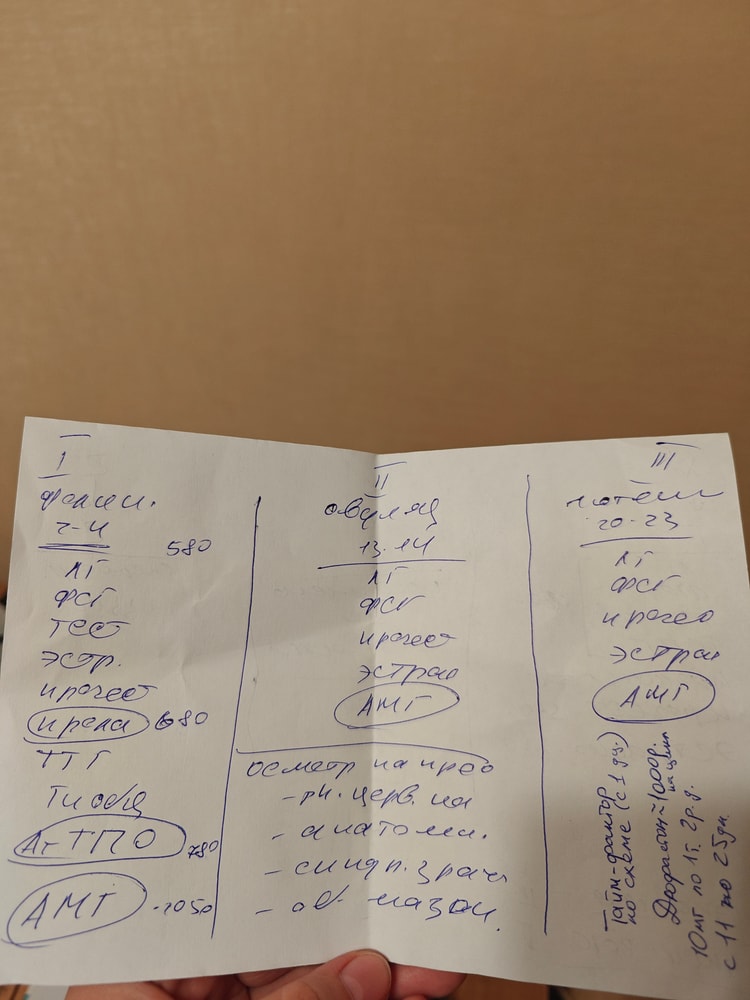 I
фолли.
2-4
580
ЛГ
ФСГ
Тест
Эстр.
прогест
прола 680
ТТГ
Т4 общ
Ат ТПО 780
АМГ -2050
II
овуляц
13.14
ЛГ
ФСГ
прогест
эстрад
АМГ
осмотр на
- рн. церв. на
- анатоми.
- симп. зрач
- об. мазок.
III
лютеин
20-23
ЛГ
ФСГ
прогес
эстрад
АМГ
Тайм-фактор
по схеме (с 1 дц.)
Дюфастон ~1000р.
на цикл
10мг по 1т. 2р.д.
с 11 по 25дц